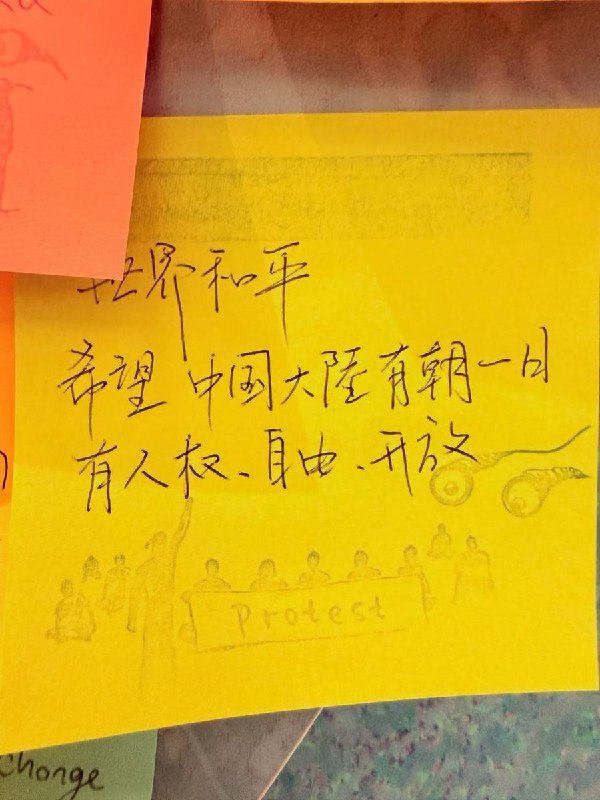 世界和平
希望 中国大陸有朝一日
有人权、自由、开放
Protest
change